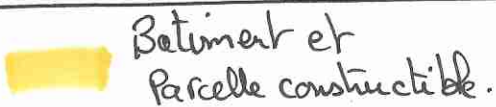 Batiment et
Parcelle constructible.